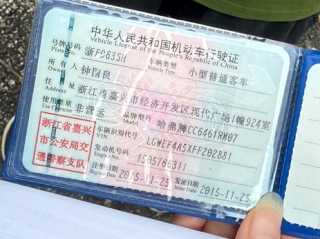 中华人民共和国机动车行驶证
Vehicle License of the People's Republic of China
号牌号码 浙F063S1 车辆类型 小型普通客车
Plate No. Vehicle Type
所有人 钟国良
Owner
住址 浙江省嘉兴市经济开发区现代广场1幢924室
Address
使用性质 非营运 品牌型号 哈弗牌CC6461RM07
Use Character Model
车辆识别代号 LGWEF4A5XFF202881
VIN
发动机号码 1505766311
Engine No.
注册日期 2015-11-25 发证日期 2015-11-25
Register Date Issue Date
浙江省嘉兴
市公安局交
通警察支队